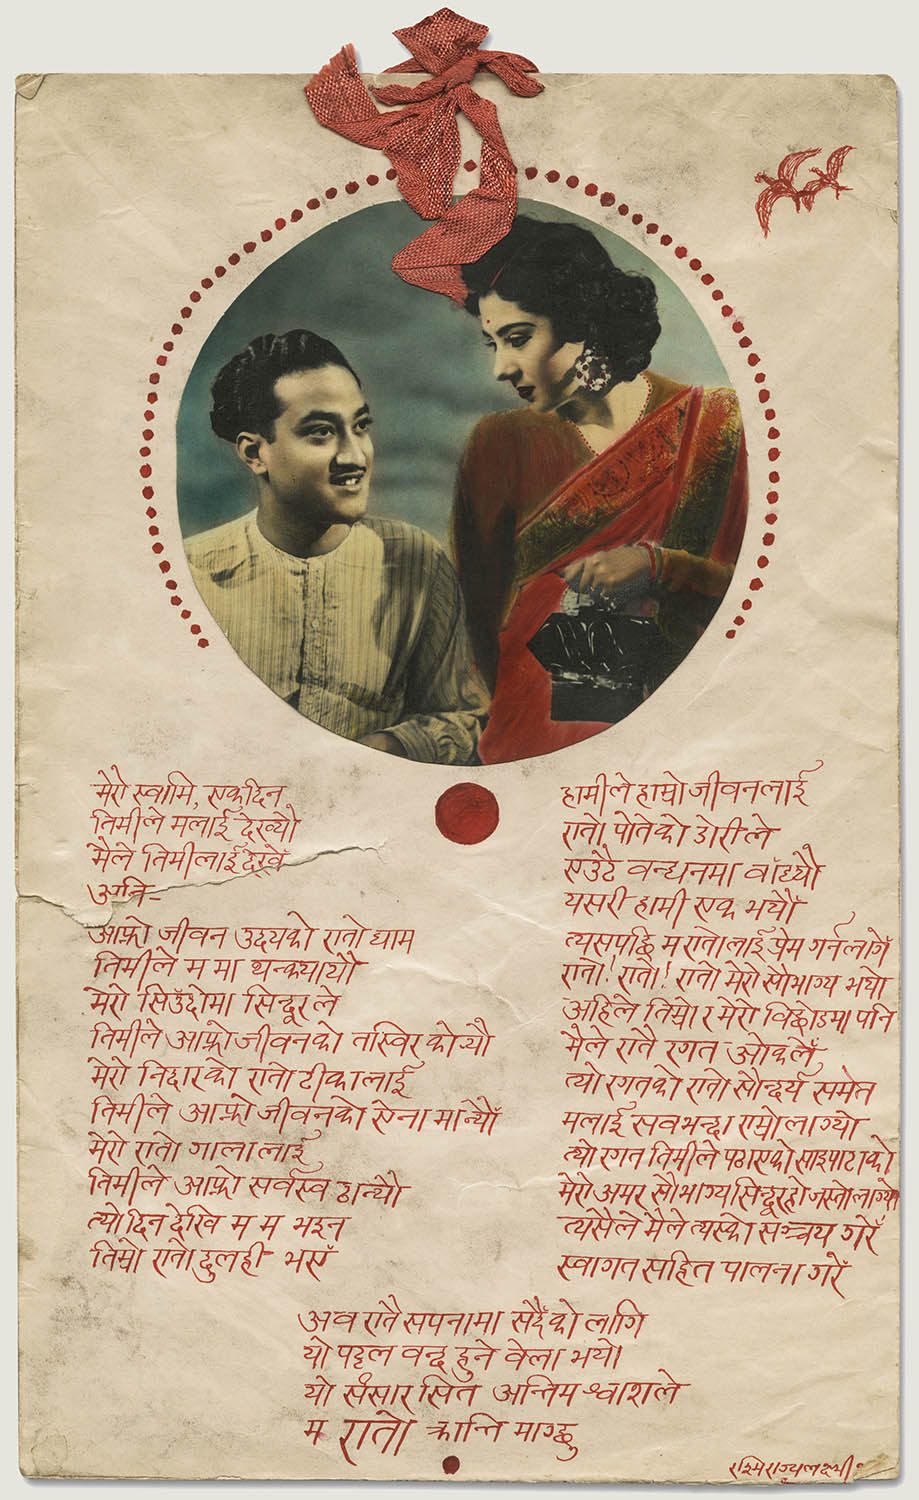 मेरो स्वामि, एकदिन
तिमीले मलाई देख्यौ
मैले तिमीलाई देखेँ
अनि-
आफ्नो जीवन उदयको रातो घाम
तिमीले म मा थन्क्यायौ
मेरो सिउँदोमा सिन्दूरले
तिमीले आफ्नो जीवनको तस्विर कोर्‍यौ
मेरो निदारको रातो टीकालाई
तिमीले आफ्नो जीवनको ऐना मान्यौँ
मेरो रातो गालालाई
तिमीले आफ्नो सर्वस्व ठान्यौ
त्यो दिन देखि म म भइन
तिम्रो रातो दुलही भएँ
हामीले हाम्रो जीवनलाई
रातो पोतेको डोरीले
एउटै वन्धनमा वाँध्यौ
यसरी हामी एक भयौँ
त्यसपछि म रातोलाई प्रेम गर्नलागेँ
रातो! रातो! रातो मेरो सौभाग्य भयो
अहिले तिम्रो र मेरो विछोडमा पनि
मैले रातै रगत ओकलेँ
त्यो रगतको रातो सौन्दर्य समेत
मलाई सवभन्दा राम्रो लाग्यो
त्यो रगत तिमीले पठाएको साइपाटाको
मेरो अमर सौभाग्य सिन्दूर हो जस्तो लाग्यो
त्यसैले मैले त्यस्को सञ्चय गरेँ
स्वागत सहित पालना गरेँ
अव रातै सपनामा सदैँको लागि
यो पट्टल वन्द हुने वेला भयो
यो संसार सित अन्तिम श्वाशले
म रातो क्रान्ति माग्छु
रश्मिराज्यलक्ष्मी